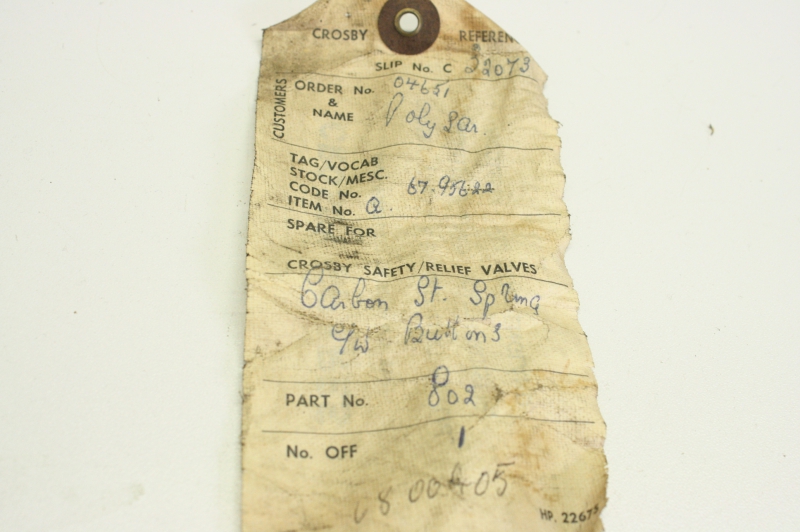 CROSBY REFEREN
SLIP No. C 22073
CUSTOMERS
ORDER No. 04651
& NAME Polysar
TAG/VOCAB
STOCK/MESC.
CODE No. 67.95622
ITEM No. Q
SPARE FOR
CROSBY SAFETY/RELIEF VALVES
Carbon St. Spring
c/w Buttons
PART No. 802
No. OFF 1
HP. 2267